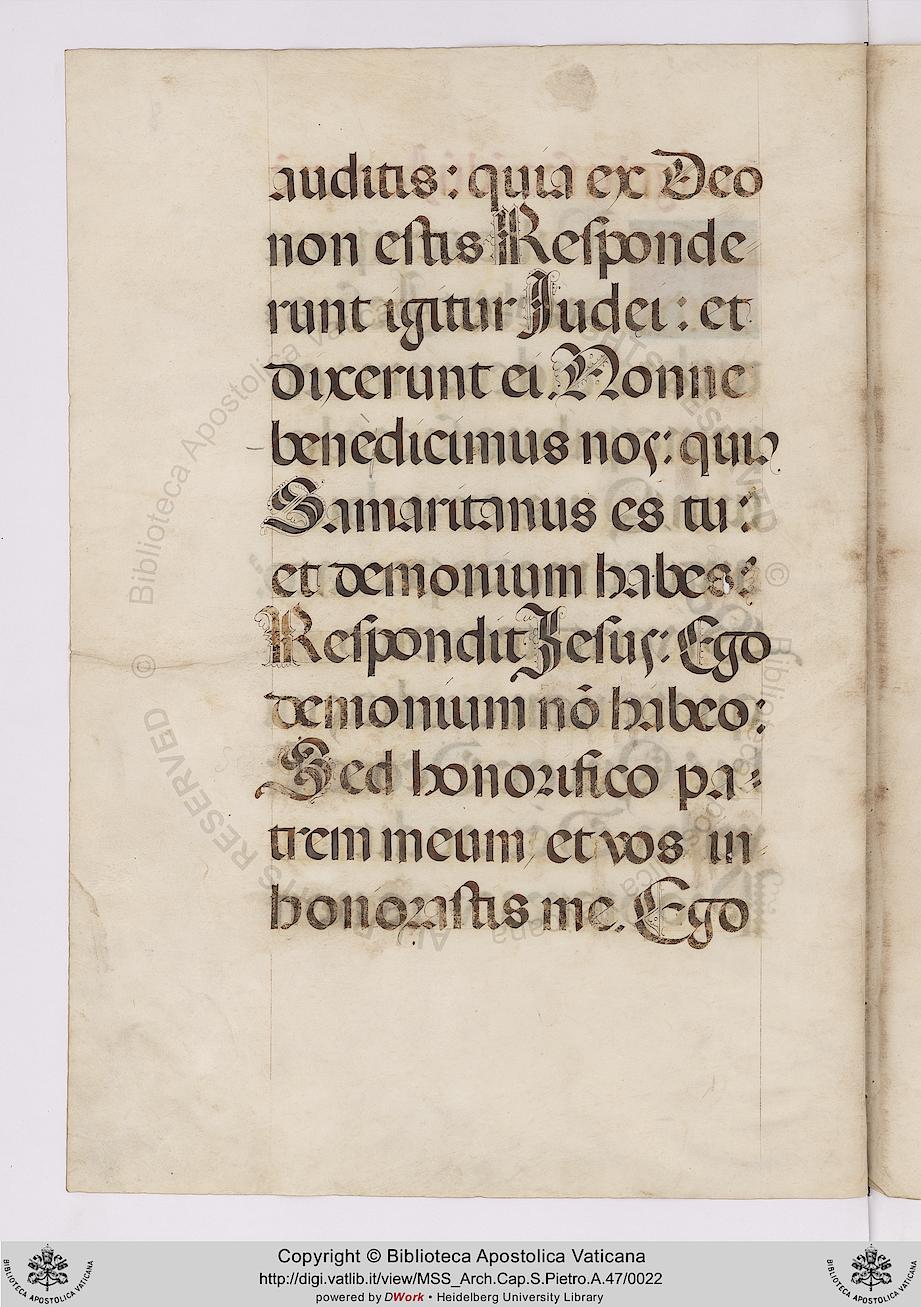 auditis: quia ex Deo
non estis Responde
runt igitur Judei: et
dixerunt ei. Nonne
benedicimus nos: quia
Samaritanus es tu:
et demonium habes:
Respondit Jesus: Ego
demonium nõ habeo:
Sed honorifico pa-
trem meum et vos in
honorastis me. Ego
Copyright © Biblioteca Apostolica Vaticana
http://digi.vatlib.it/view/MSS_Arch.Cap.S.Pietro.A.47/0022
powered by DWork • Heidelberg University Library